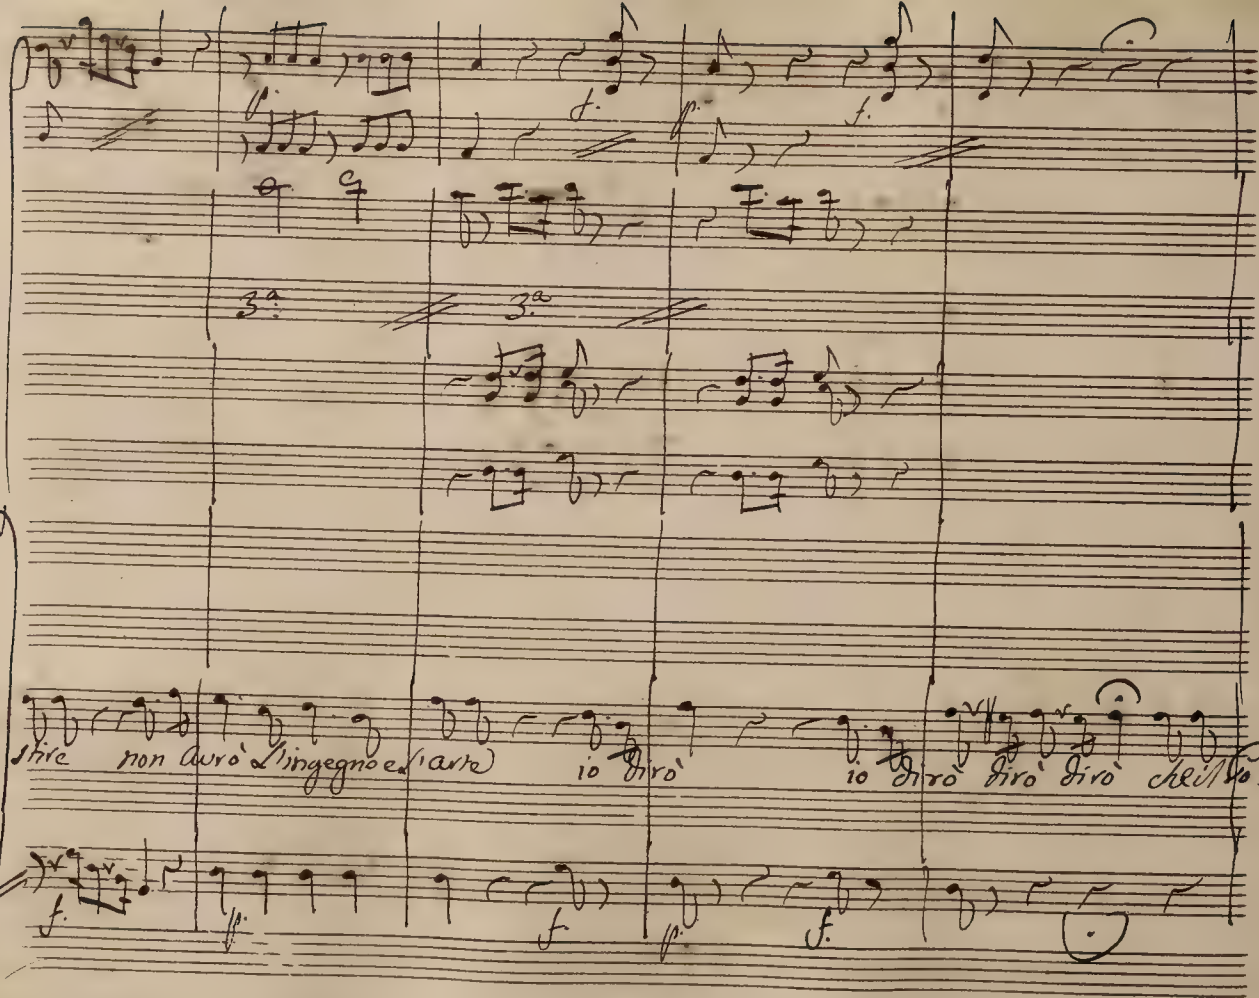 p. f. p. f.
3.ª 3.ª
stire non avrò L'ingegno e L'arte io dirò io dirò dirò dirò che il
f. p. f. p. f.